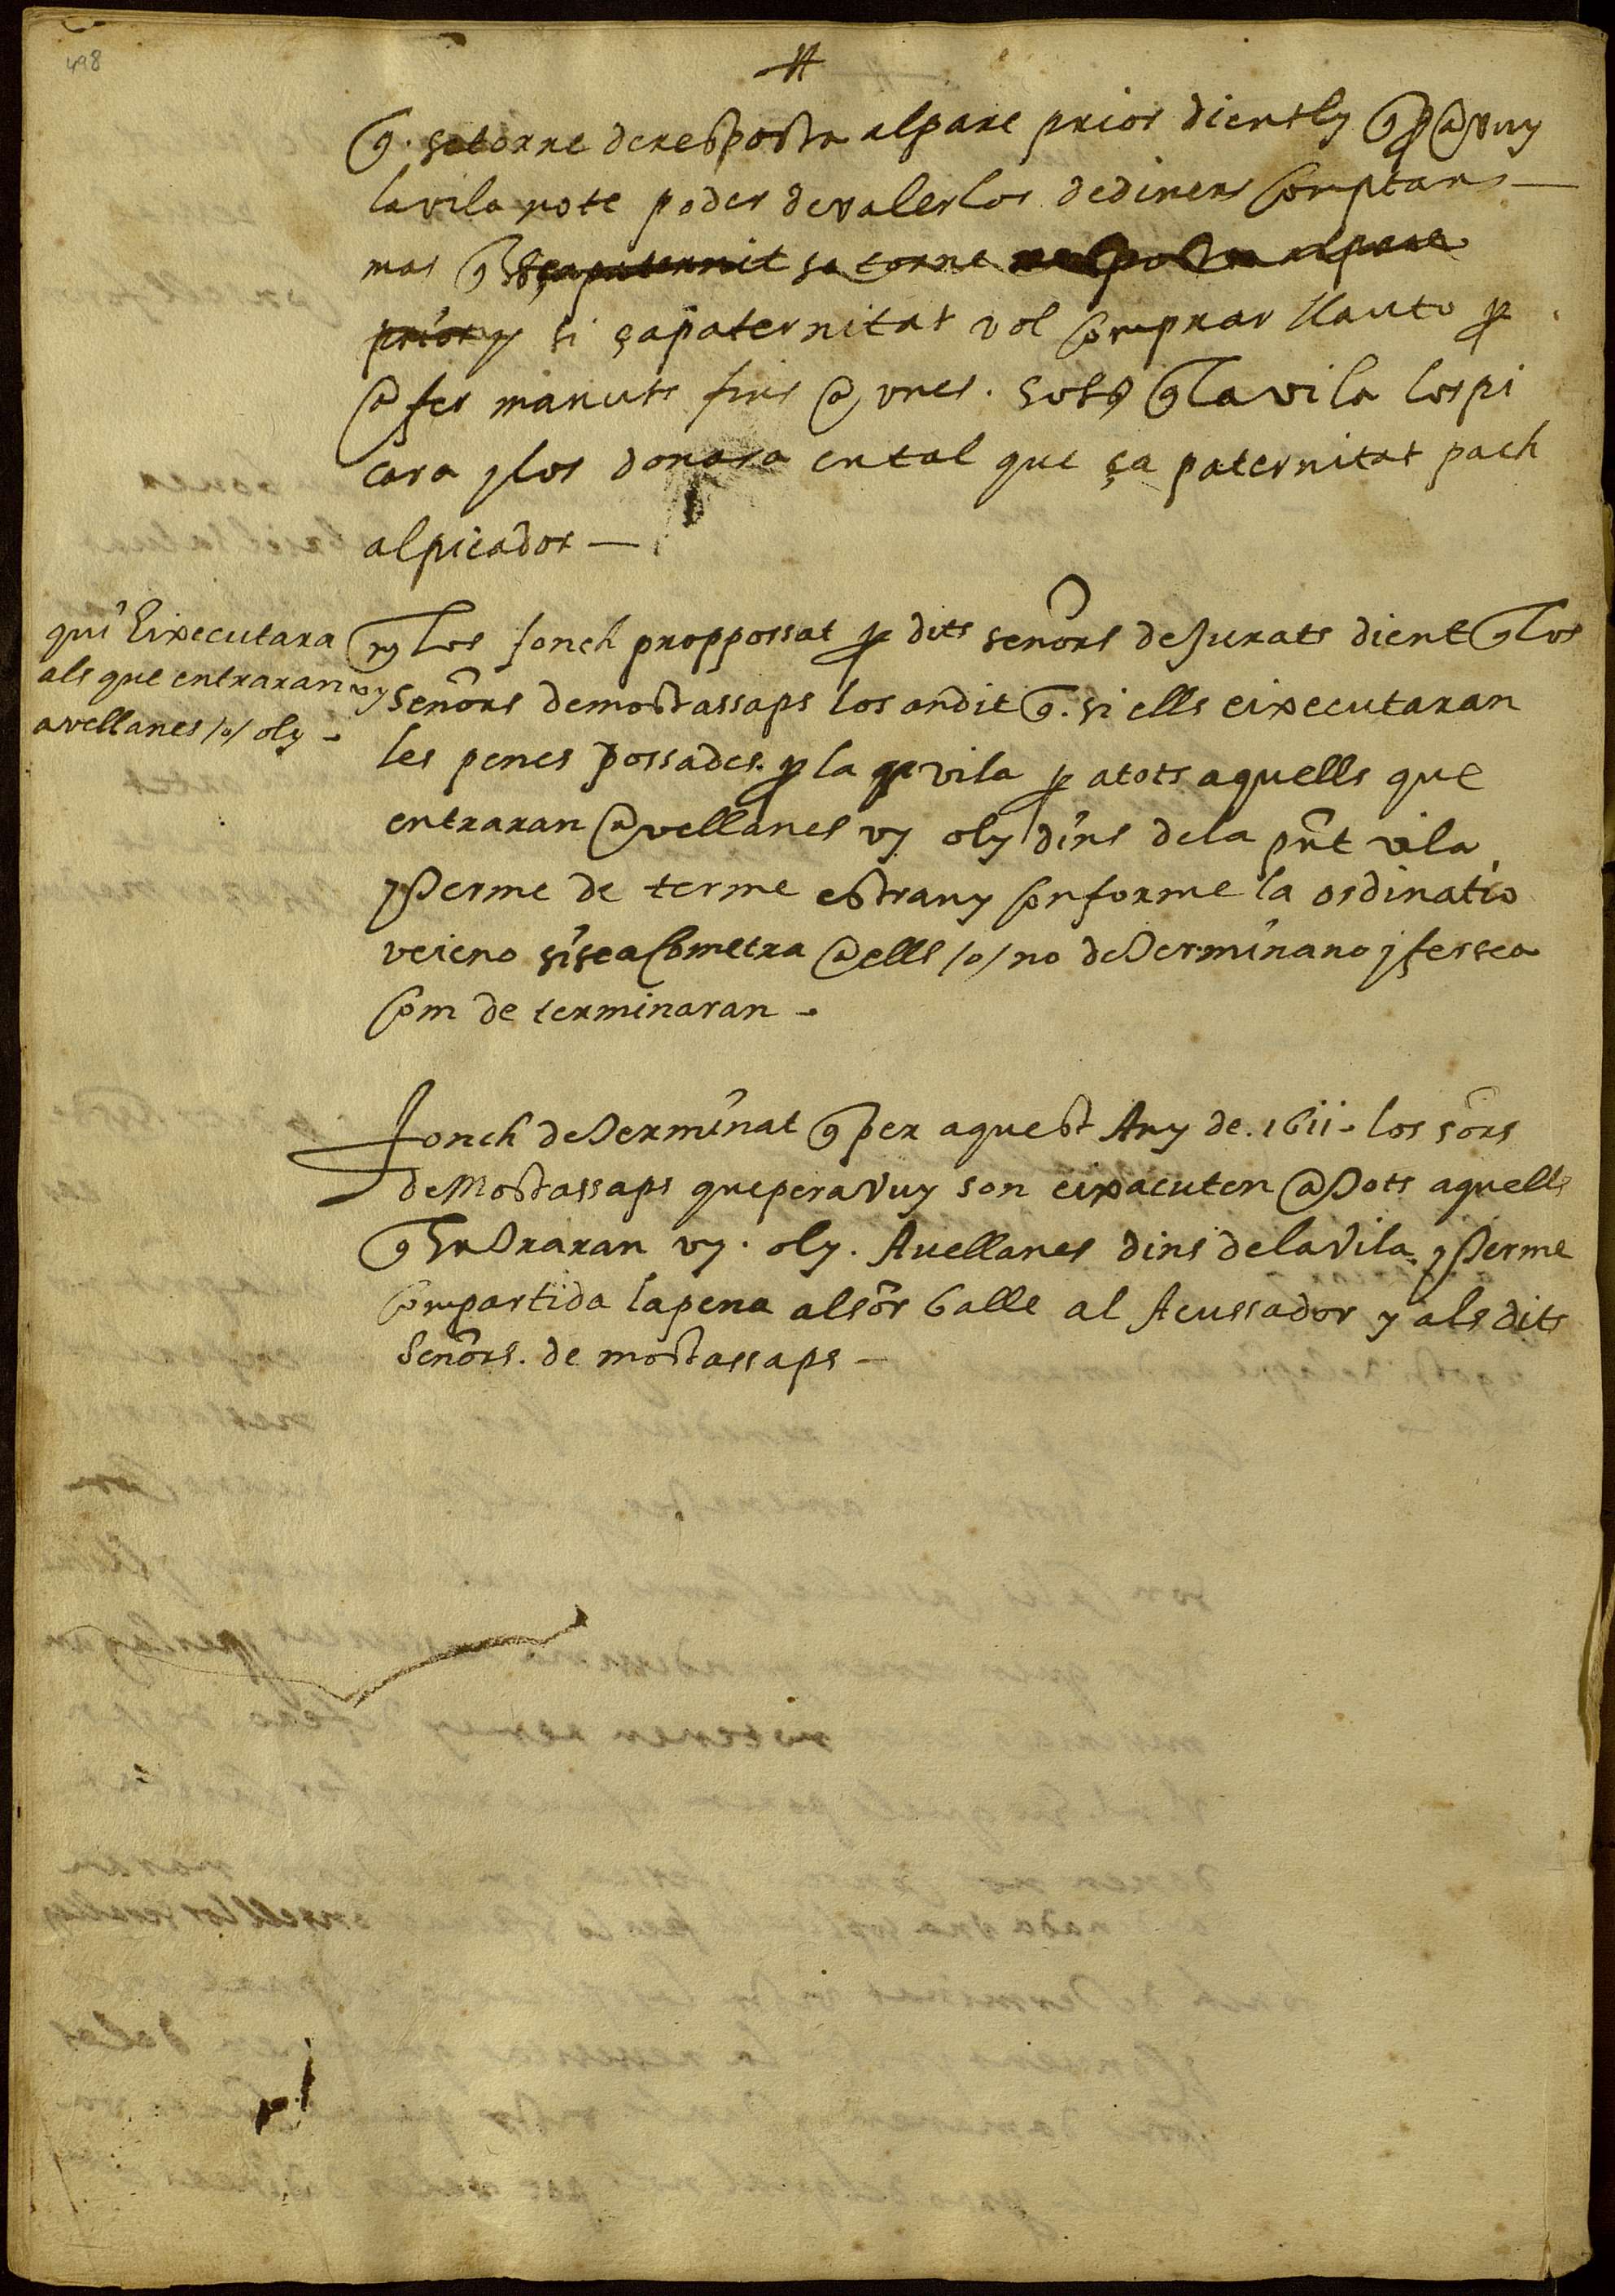 498
q. se torne de resposta al pare prior diently q p a vuy
la vila no te poder de valerlos de diners comptans —
mas q si sa paternit sa torne resposta al pare
prior y si ça paternitat vol comprar llauto p
a fer manuts fins a unes. sols q la vila los pi
cara y los donara en tal que ça paternitat pach
al picador —
qui Eixecutara
als que entraran vy
avellanes /o/ oly -
mes los fonch proppossat p dits señors de Jurats dient q los
señors de mostassaps los an dit q. si ells eixecutaran
les penes possades. p la vila p a tots aquells que
entraran avellanes vy oly dins de la pñt vila
y terme de terme estrany conforme la ordinatio
veieno si sea cometra a ells /o/ no determinano y fer sea
com de terminaran -
Fonch determinat q per aquest Any de. 1611 - los sõrs
de Mostassaps que per a vuy son eixacuten a tots aquells
q Entraran vy. oly. Avellanes dins de la Vila y terme
compartida la pena al sõr balle al Acussador y als dits
señors. de mostassaps —